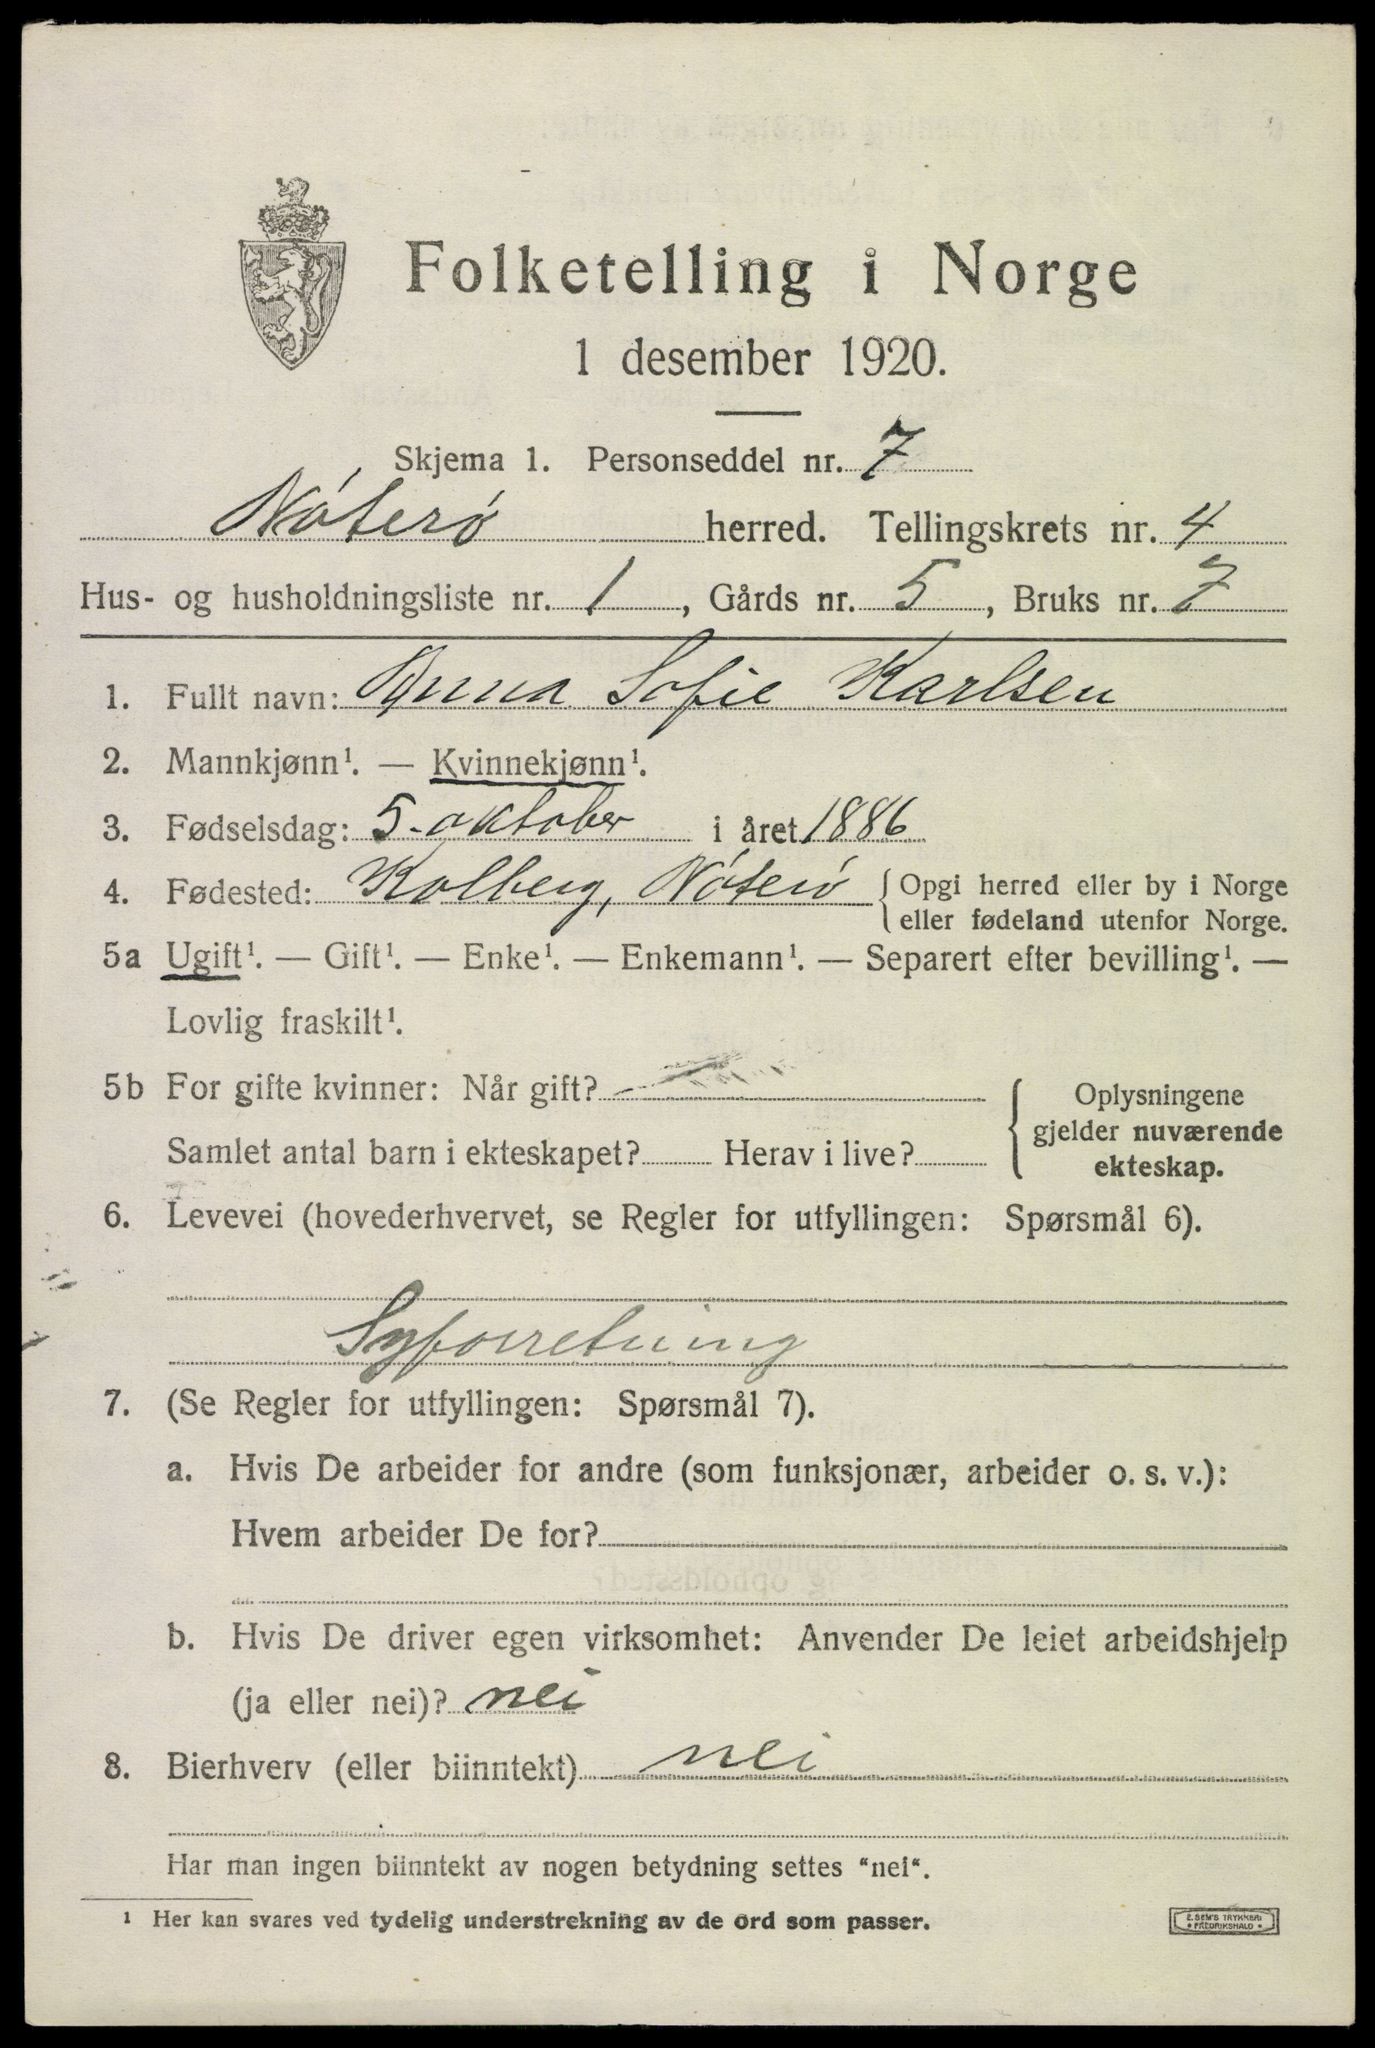 Folketelling i Norge
1 desember 1920.
Skjema 1. Personseddel nr. 7
Nóteró herred. Tellingskrets nr. 4
Hus- og husholdningsliste nr. 1, Gårds nr. 5, Bruks nr. 7
1. Fullt navn: Anna Sofie Karlsen
2. Mannkjønn¹. — Kvinnekjønn¹.
3. Fødselsdag: 5. oktober i året 1886
4. Fødested: Kolberg, Nóteró { Opgi herred eller by i Norge
eller fødeland utenfor Norge.
5a Ugift¹. — Gift¹. — Enke¹. — Enkemann¹. — Separert efter bevilling¹. —
Lovlig fraskilt¹.
5b For gifte kvinner: Når gift?
Samlet antal barn i ekteskapet? Herav i live?
{ Oplysningene
gjelder nuværende
ekteskap.
6. Levevei (hovederhvervet, se Regler for utfyllingen: Spørsmål 6).
Syforretning
7. (Se Regler for utfyllingen: Spørsmål 7).
a. Hvis De arbeider for andre (som funksjonær, arbeider o. s. v.):
Hvem arbeider De for?
b. Hvis De driver egen virksomhet: Anvender De leiet arbeidshjelp
(ja eller nei)? nei
8. Bierhverv (eller biinntekt) nei
Har man ingen biinntekt av nogen betydning settes "nei".
¹ Her kan svares ved tydelig understrekning av de ord som passer.
E. SEM'S TRYKKERI
• FREDRIKSHALD •